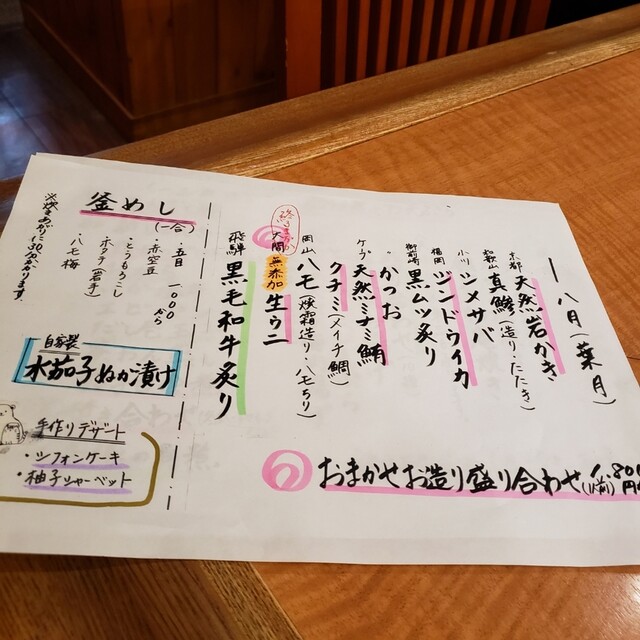 八月(葉月)
京都 天然岩かき
和歌山 真鯵(造り・たたき)
シメサバ
福岡 ジンドウイカ
御前崎 黒ムツ炙り
かつお
天然ミナミ鯛
クチミ(メイチ鯛)
岡山 ハモ(焼霜造り・ハモちり)
無添加 生ウニ
飛騨 黒毛和牛炙り
おまかせお造り盛り合わせ
釜めし
(一合)
・五目 1000から
・赤空豆
・とうもろこし
・ホタテ
・ハモ梅
自家製
水茄子ぬか漬け
手作りデザート
・シフォンケーキ
・柚子シャーベット